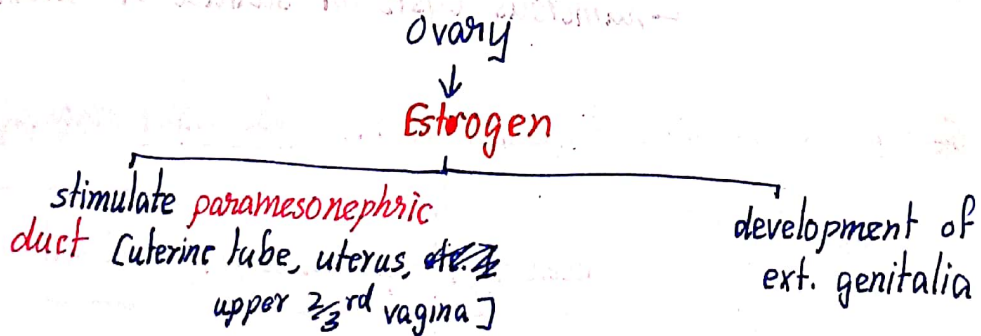 Ovary
↓
Estrogen
stimulate paramesonephric
duct [uterine tube, uterus,
upper 2/3rd vagina]
development of
ext. genitalia